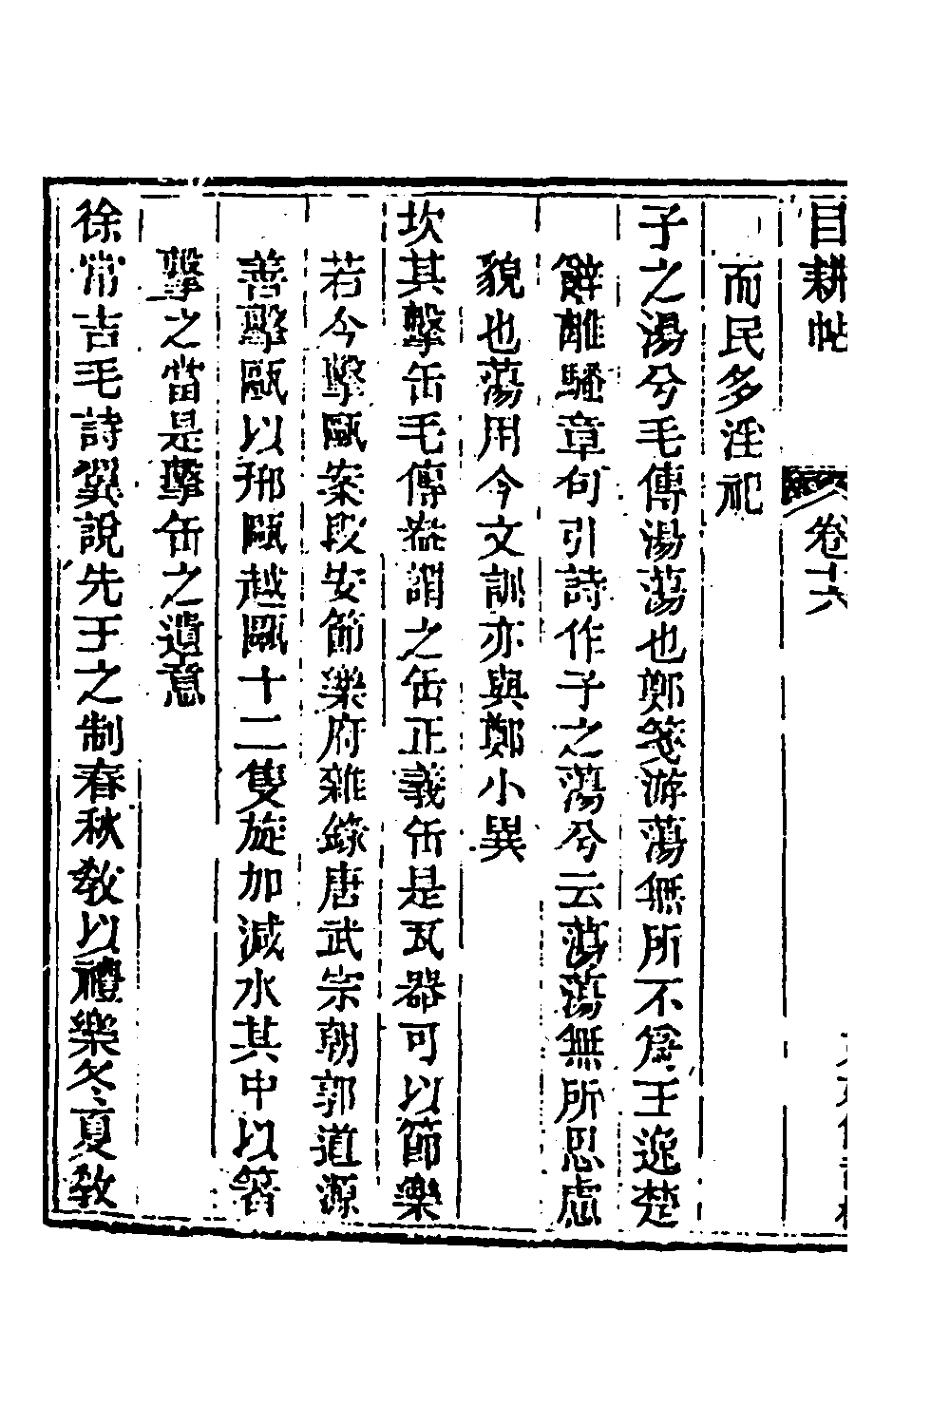 目耕帖 卷十六
而民多淫祀
子之湯兮毛傳湯蕩也鄭箋游蕩無所不爲王逸楚
辭離騷章句引詩作子之蕩兮云蕩蕩無所思慮
貌也蕩用今文訓亦與鄭小異
坎其擊缶毛傳盎謂之缶正義缶是瓦器可以節樂
若今擊甌案段安節樂府雜錄唐武宗朝郭道源
善擊甌以邢甌越甌十二隻旋加減水其中以箸
擊之當是擊缶之遺意
徐常吉毛詩翼說先王之制春秋敎以禮樂冬夏敎